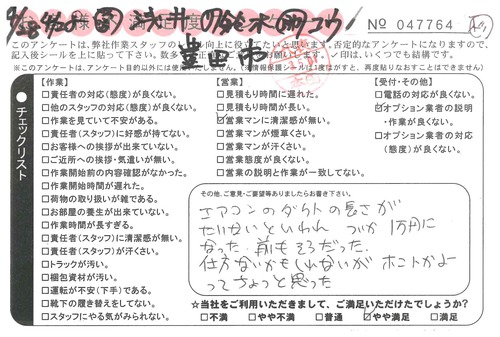 № 047764
このアンケートは、弊社作業スタッフの
向上に役立てたいと思います。否定的なアンケートになりますので、
記入後シールを上に貼って下さい。
お願いします。✓印は、いくつでも結構です。
※このアンケートは、アンケート目的以外には使用いたしません。
チェックリスト
【作業】
□責任者の対応(態度)が良くない。
□他のスタッフの対応(態度)が良くない。
□作業を見ていて不安がある。
□責任者(スタッフ)に好感が持てない。
□お客様への挨拶が出来ていない。
□ご近所への挨拶・気遣いが無い。
□作業開始前の内容確認がなかった。
□作業開始時間が遅れた。
□荷物の取り扱いが雑である。
□お部屋の養生が出来ていない。
□作業時間が長すぎる。
□責任者(スタッフ)に清潔感が無い。
□責任者(スタッフ)が汗くさい。
□トラックが汚い。
□梱包資材が汚い。
□運転が不安(下手)である。
□靴下の履き替えをしてない。
□スタッフにやる気がみられない。
【営業】
□見積もり時間に遅れた。
□見積もり時間が長い。
☑営業マンに清潔感が無い。
□営業マンが煙草くさい。
□営業マンが汗くさい。
□営業態度が良くない。
□営業の説明と作業が一致してない。
【受付・その他】
□電話の対応が良くない。
☑オプション業者の説明
・作業が良くない。
□オプション業者の対応
(態度)が良くない。
その他、ご意見・ご要望等ありましたらお書き下さい。
エアコンのダクトの長さが
たりないといわれ
1万円に
なった。前もそうだった。
仕方ないかもしれないが ホントかよ
ってちょっと思った
☆当社をご利用いただきまして、ご満足いただけたでしょうか?
□不満 □やや不満 □普通 ☑やや満足 □満足